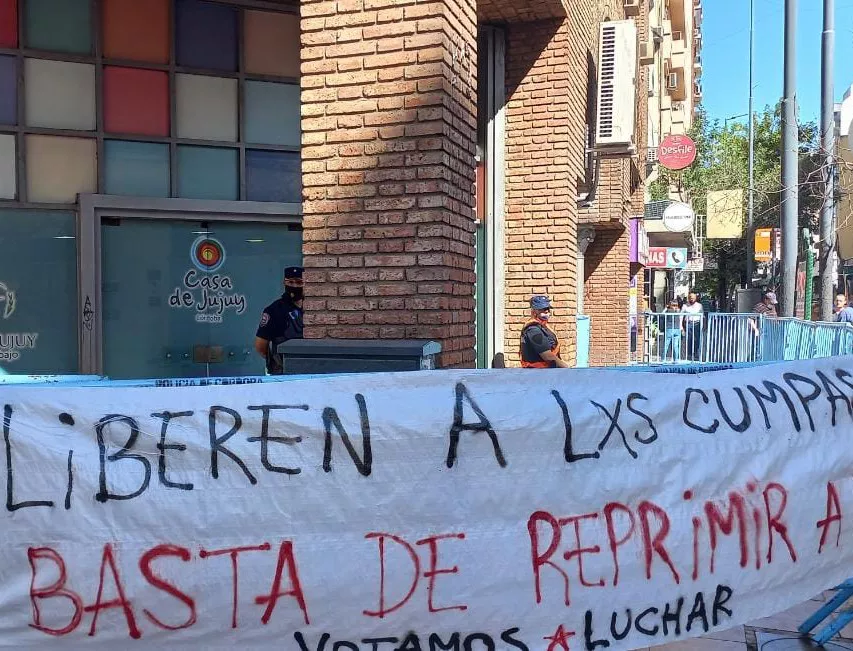 Desfile
NAS
Casa
de Jujuy
Córdoba
JUJUY
bajo
POLICIA DE CORDOBA
LIBEREN A LXS CUMPAS
BASTA DE REPRIMIR A
VOTAMOS ★ LUCHAR